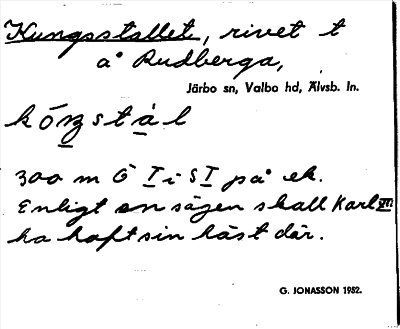 Kungsstallet, rivet t
å Rudberga,
Järbo sn, Valbo hd, Älvsb. ln.
300 m Ö I i SI på ek.
Enligt en sägen skall Karl XII
ha haft sin häst där.
G. JONASSON 1952.